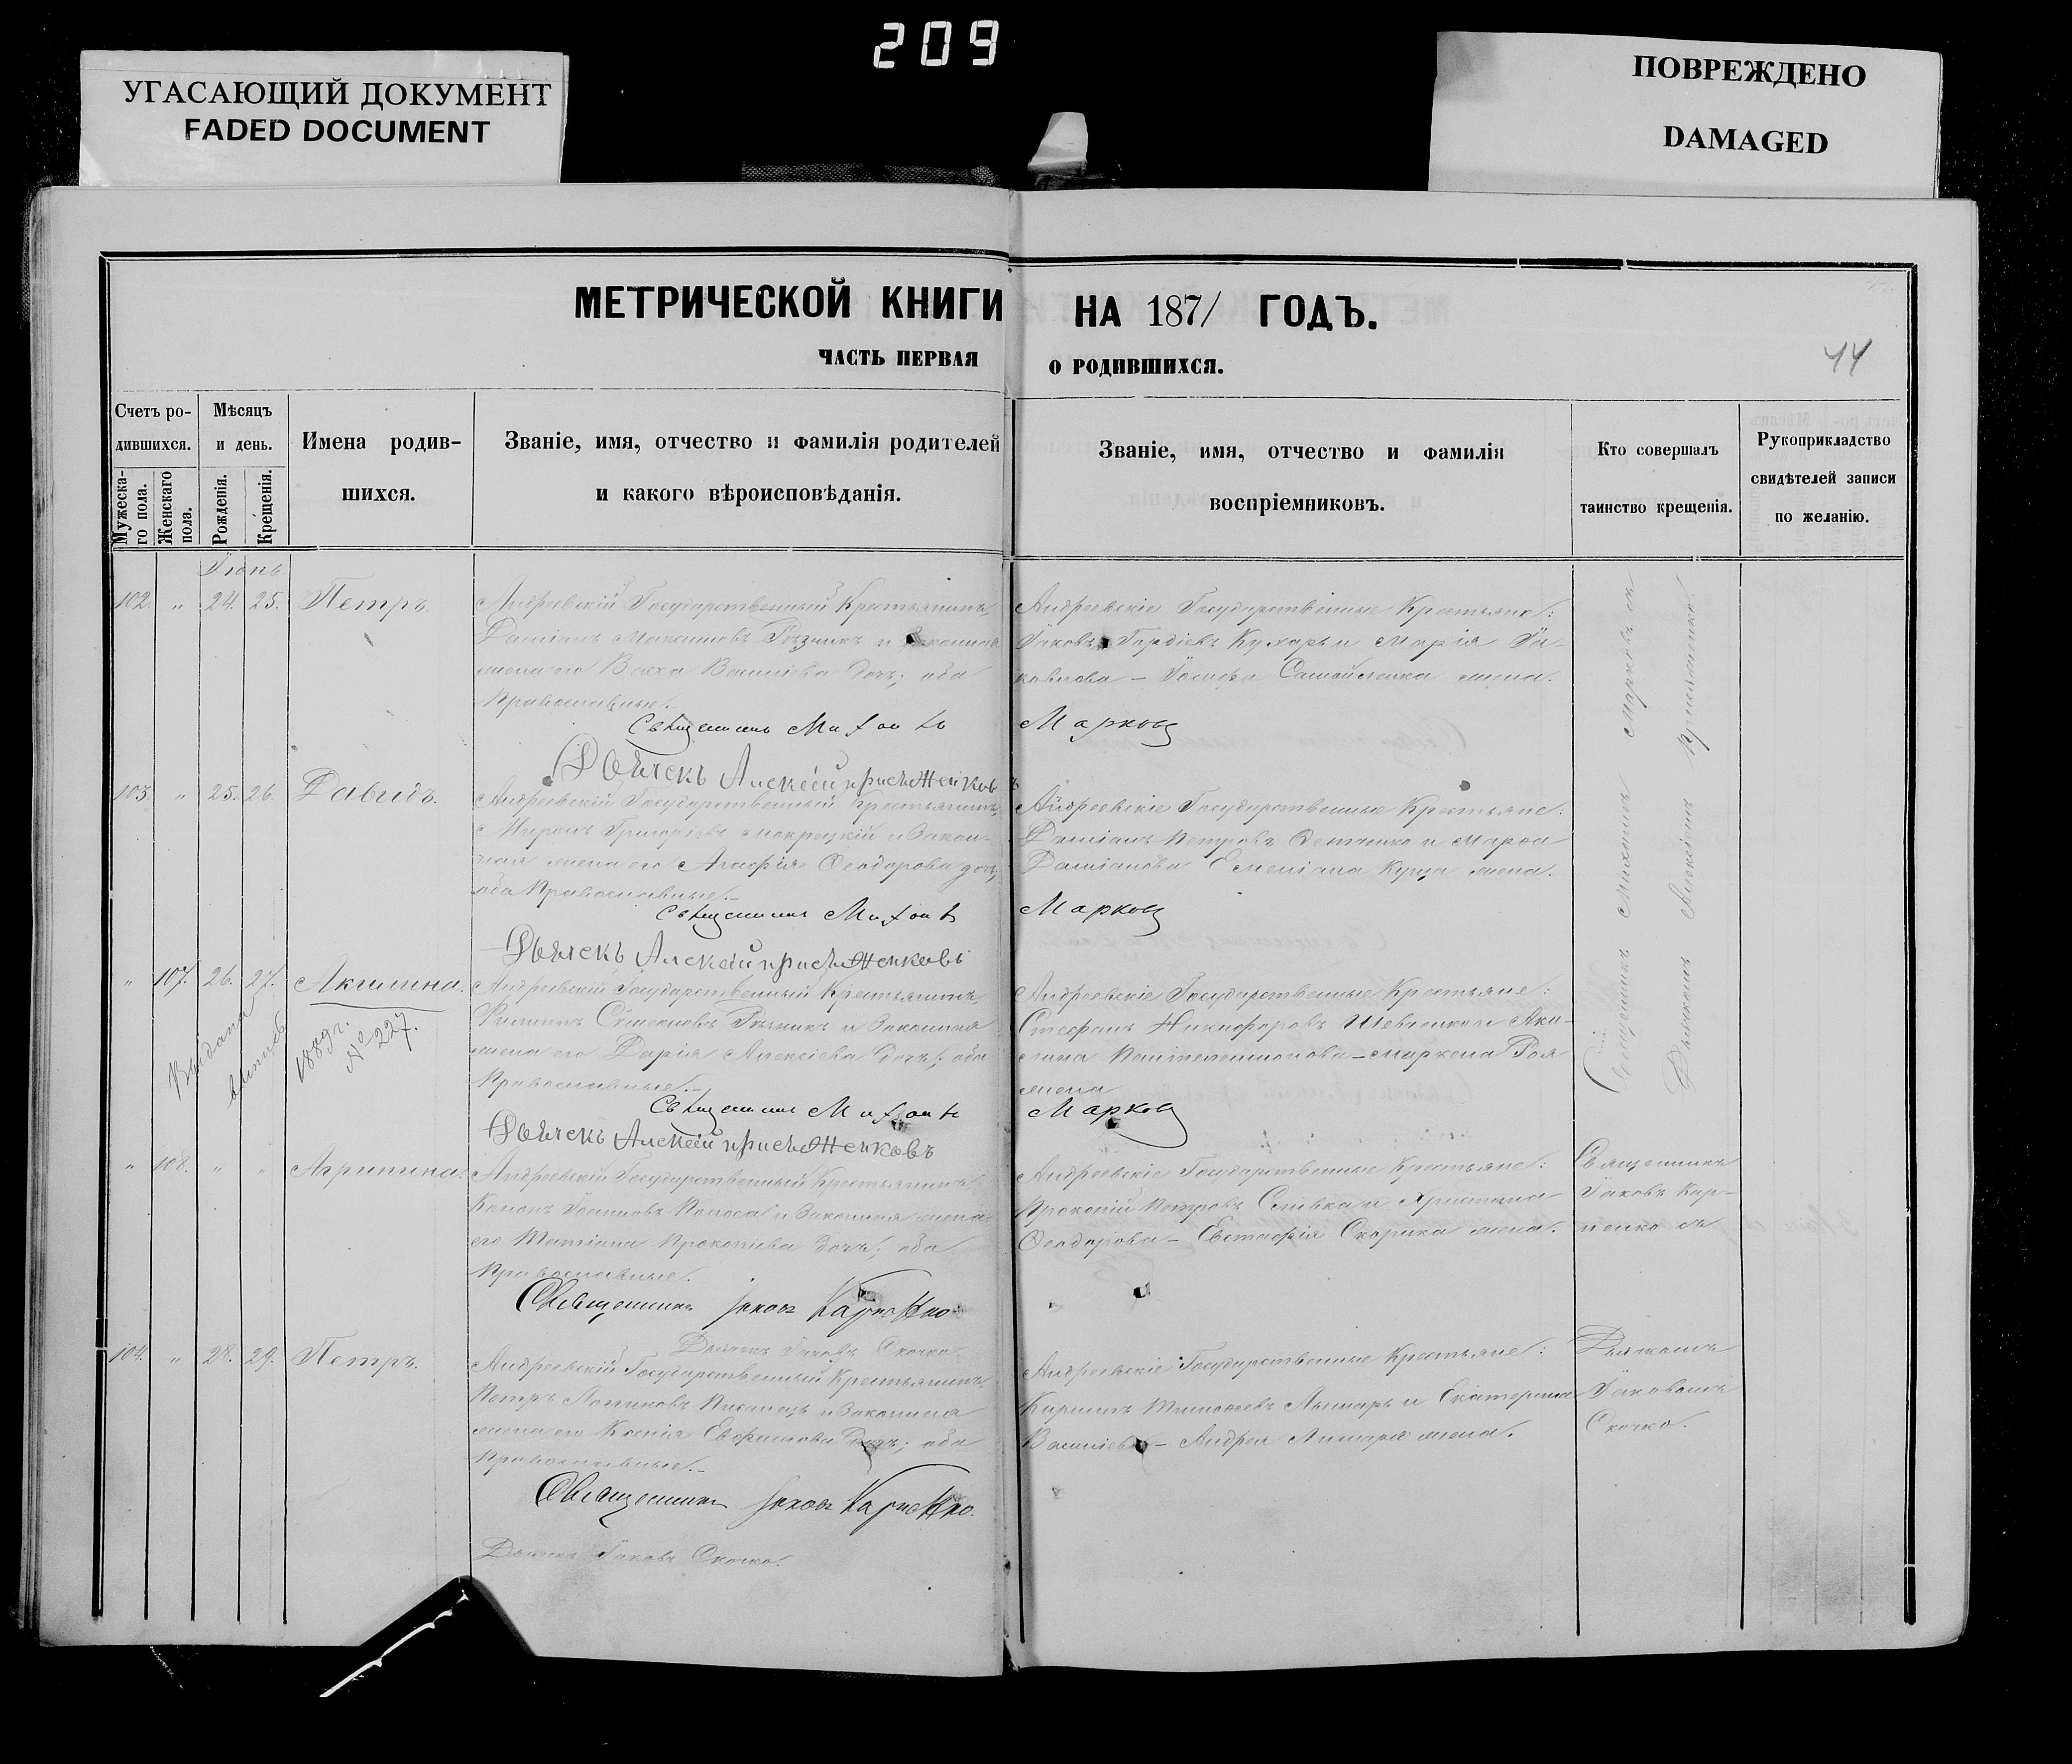 209
УГАСАЮЩИЙ ДОКУМЕНТ
FADED DOCUMENT
ПОВРЕЖДЕНО
DAMAGED
МЕТРИЧЕСКОЙ КНИГИ НА 1871 ГОДЪ.
ЧАСТЬ ПЕРВАЯ О РОДИВШИХСЯ.
44
Счетъ ро-
дившихся.
Мужеска-
го пола.
Женскаго
пола.
Мѣсяцъ
и день.
Рожденія.
Крещенія.
Имена родив-
шихся.
Званіе, имя, отчество и фамилія родителей
и какого вѣроисповѣданія.
Званіе, имя, отчество и фамилія
воспріемниковъ.
Кто совершалъ
таинство крещенія.
Рукоприкладство
свидѣтелей записи
по желанію.
Іюнь
102. " 24. 25. Петръ.
Андреевскій Государственный Крестьянинъ,
Даміанъ Максимовъ Рѣзникъ и Законная
жена его Васса Васильева дочь; оба
Православные.
Андреевскіе Государственные Крестьяне:
Іаковъ Гордіевъ Кухарь и Марія Іа-
ковлова – Іосифа Самойленка жена.
Священникъ Михаилъ Марковъ
Дьячекъ Алексѣй
103. " 25. 26. Давидъ.
Андреевскій Государственный Крестьянинъ,
Миронъ Григоріевъ Мокрецкій и Закон-
ная жена его Агафія Ѳеодорова дочь,
оба Православные.
Андреевскіе Государственные Крестьяне:
Даміанъ Петровъ и Марѳа
Даміанова жена.
Священникъ Михаилъ Марковъ
Дьячекъ Алексѣй
" 107. 26. 27. Акилина.
Выдана
выпись
1889 г.
№ 227.
Андреевскій Государственный Крестьянинъ,
Филиппъ Симеоновъ Рѣзникъ и Законная
жена его Дарія Алексіева дочь; оба
Православные.
Андреевскіе Государственные Крестьяне:
Стефанъ Никифоровъ Шевченко и Аки-
лина Пантелеимонова – Маркела
жена
Священникъ Михаилъ Марковъ
Дьячекъ Алексѣй
Священникъ Михаилъ Марковъ съ
Дьячкомъ Алексіемъ
" 108. " " Агрипина.
Андреевскій Государственный Крестьянинъ,
Кононъ Іосифовъ Полоса и Законная жена
его Татіана Прокопіева дочь; оба
Православные.
Андреевскіе Государственные Крестьяне:
Прокопій Петровъ Сливка и Христина
Ѳеодорова – Евстафія Скорика жена.
Священникъ
Іаковъ Кар-
пенко съ
Священникъ Іаковъ Карпенко.
Дьячекъ Іаковъ Скочко.
104. " 28. 29. Петръ.
Андреевскій Государственный Крестьянинъ,
Петръ и Законная
жена его Ксенія дочь; оба
Православные.
Андреевскіе Государственные Крестьяне:
Кириллъ Тимоѳеевъ и Екатерина
Васильева – Андрея жена.
Дьячкомъ
Іаковомъ
Скочко.
Священникъ Іаковъ Карпенко.
Дьячекъ Іаковъ Скочко.